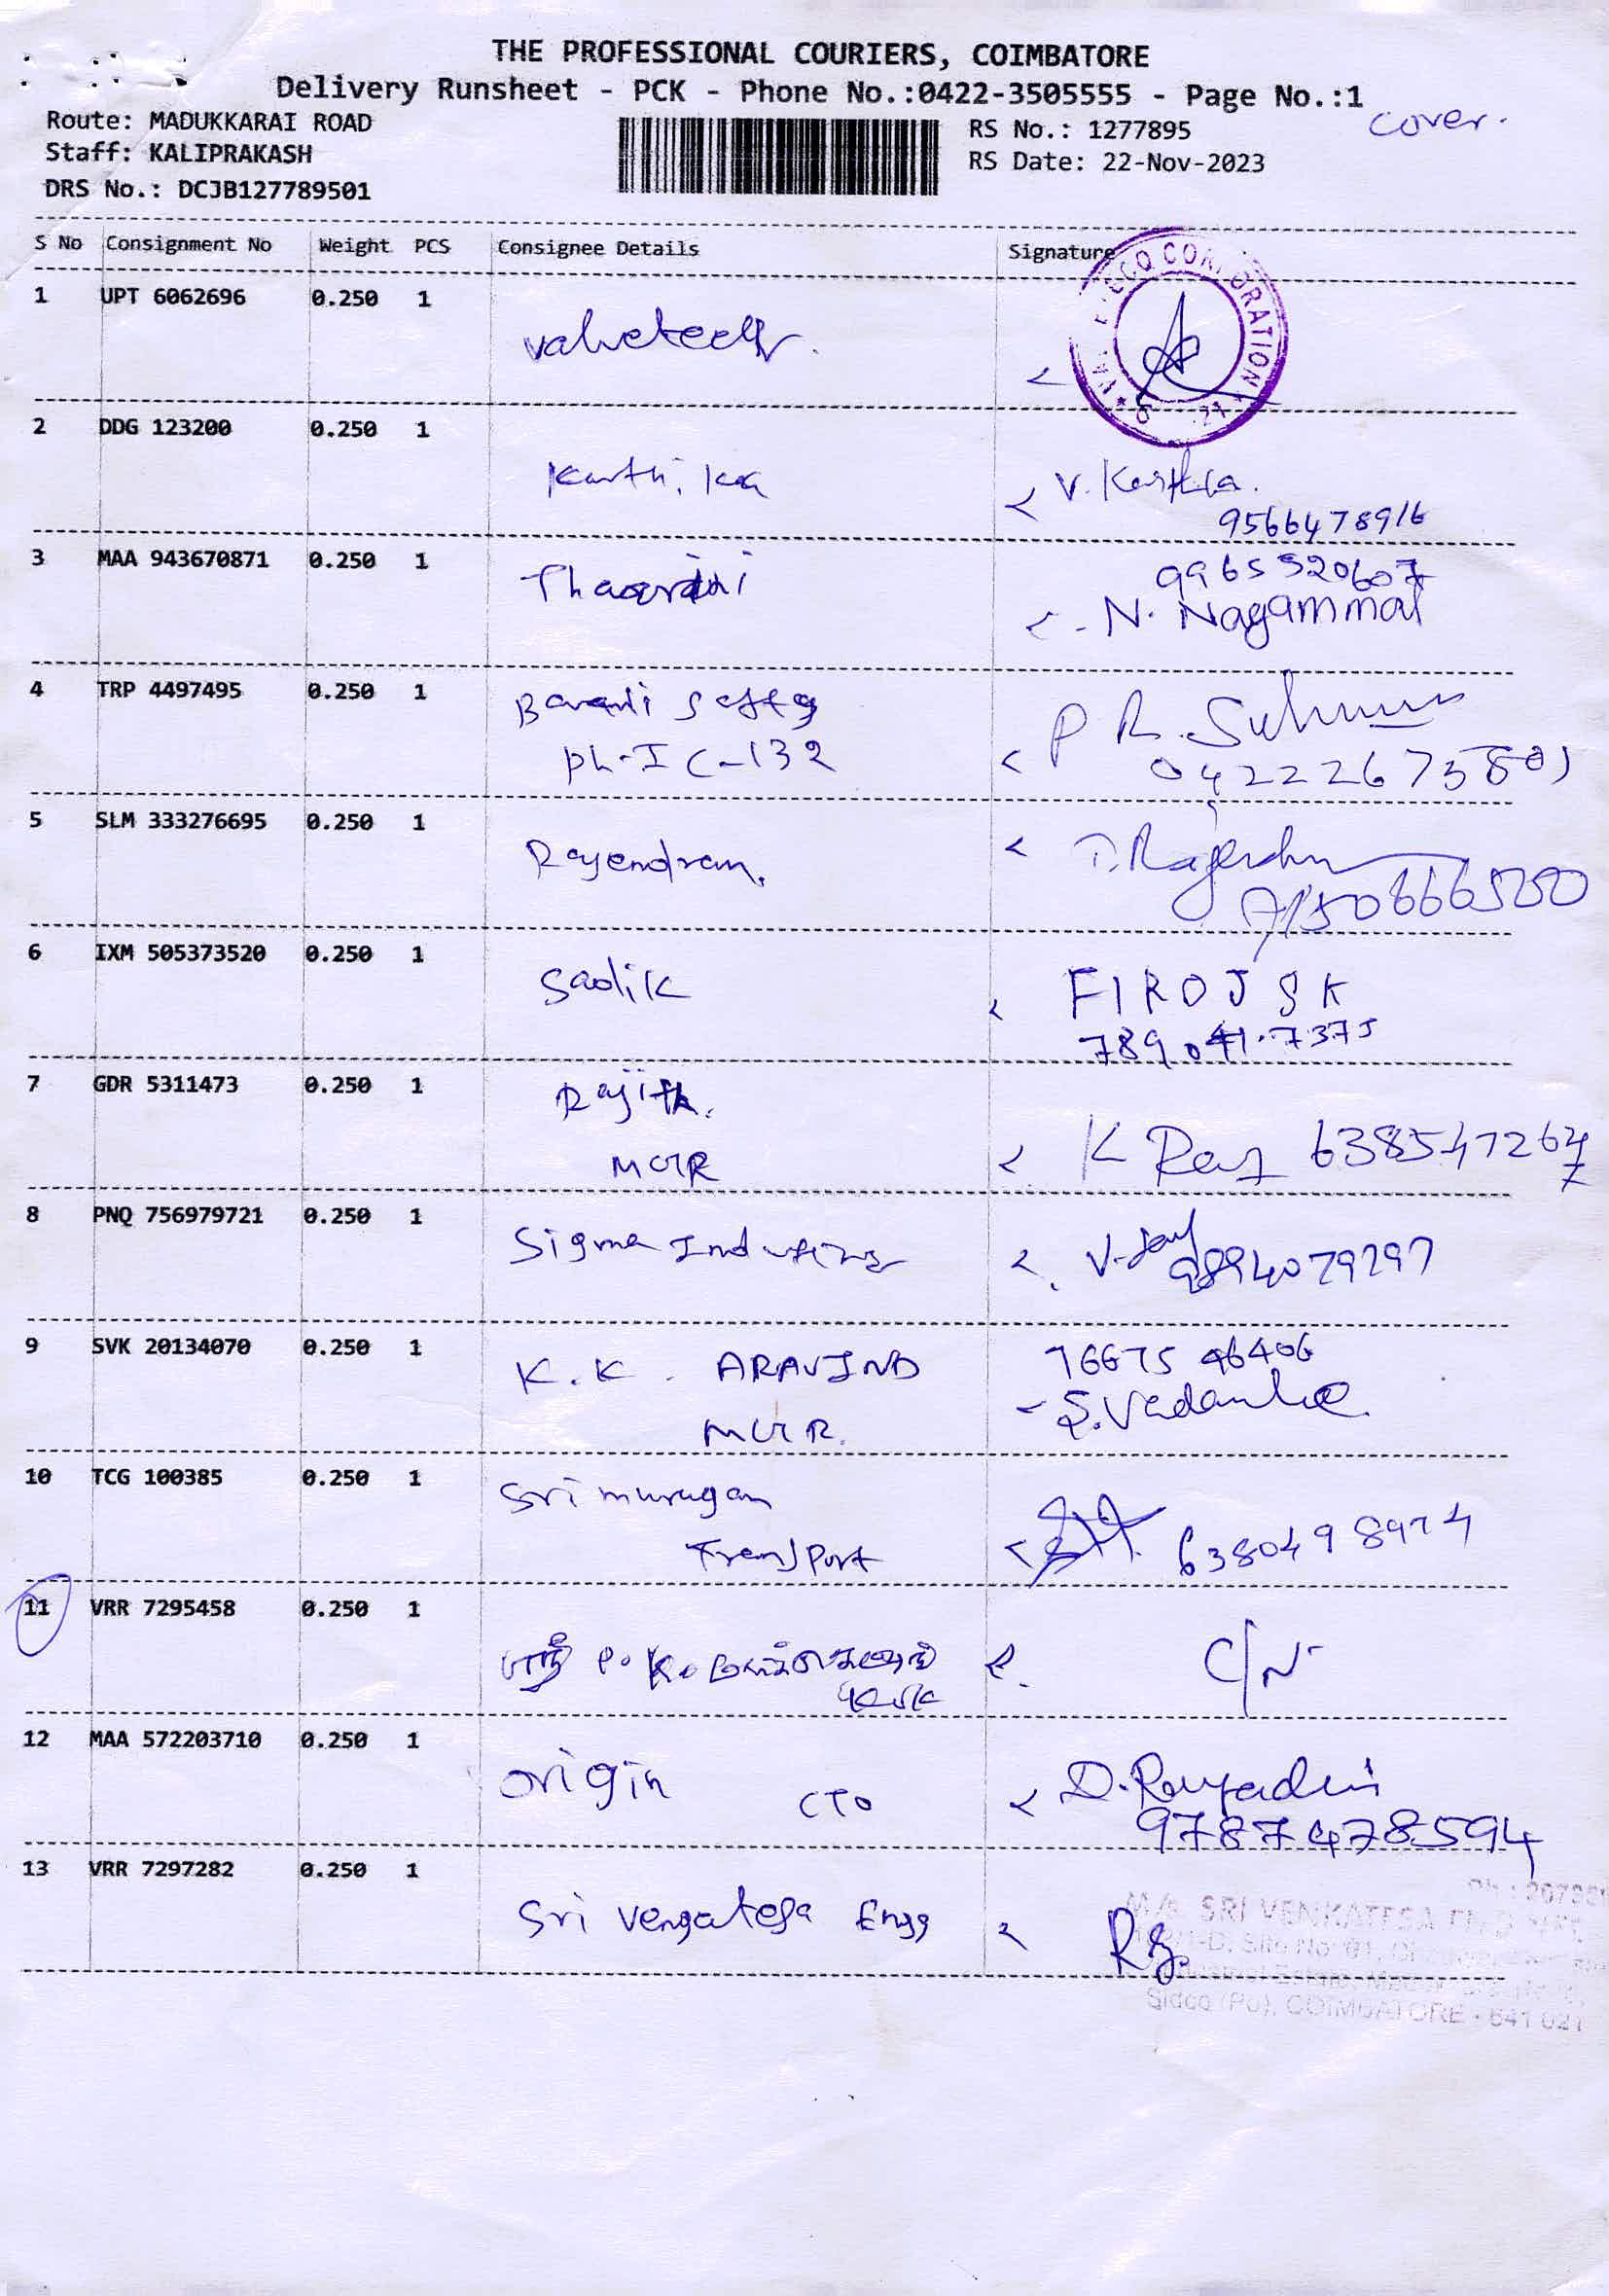 THE PROFESSIONAL COURIERS, COIMBATORE
Delivery Runsheet - PCK - Phone No.:0422-3505555 - Page No.:1
cover.
Route: MADUKKARAI ROAD
Staff: KALIPRAKASH
DRS No.: DCJB127789501
RS No.: 1277895
RS Date: 22-Nov-2023
S No Consignment No Weight PCS Consignee Details Signature
CORPORATION
1 UPT 6062696 0.250 1
2 DDG 123200 0.250 1
Karthi, ka V. Karthka.
9566478916
3 MAA 943670871 0.250 1
9965520607
N. Nagammal
4 TRP 4497495 0.250 1
Ph-I C-132 P R.
04222673801
5 SLM 333276695 0.250 1
Rajendran.
6 IXM 505373520 0.250 1
Sadik FIROJ SK
789041.7375
7 GDR 5311473 0.250 1
Rajith.
MGR K Raj
8 PNQ 756979721 0.250 1
Sigma
9894079297
9 SVK 20134070 0.250 1
K.K. ARAVIND
MGR.
10 TCG 100385 0.250 1
Sri murugan
Transport 6380498974
11 VRR 7295458 0.250 1
ஸ்ரீ P. K. C/N
12 MAA 572203710 0.250 1
origin CTO
9787478594
13 VRR 7297282 0.250 1
Sri Vengatesa Engg
M/s. SRI VENKATESA
Sidco (Po), COIMBATORE - 641 021